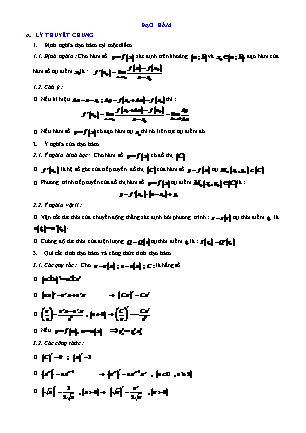 ĐẠO HÀM
A. LÝ THUYẾT CHUNG
1. Định nghĩa đạo hàm tại một điểm
1.1. Định nghĩa: Cho hàm số y = f(x) xác định trên khoảng (a; b) và x₀ ∈ (a; b), đạo hàm của
hàm số tại điểm x₀ là: f'(x₀) = lim
1.2. Chú ý:
Nếu kí hiệu Δx = x − x₀ ; Δy = f(x₀ + Δx) − f(x₀) thì:
Nếu hàm số y = f(x) có đạo hàm tại x₀ thì nó liên tục tại điểm đó.
2. Ý nghĩa của đạo hàm
2.1. Ý nghĩa hình học: Cho hàm số y = f(x) có đồ thị (C)
f'(x₀) là hệ số góc của tiếp tuyến đồ thị (C) của hàm số y = f(x) tại M₀(x₀, y₀) ∈ (C)
Phương trình tiếp tuyến của đồ thị hàm số y = f(x) tại điểm M₀(x₀, y₀) ∈ (C) là:
2.2. Ý nghĩa vật lí:
Vận tốc tức thời của chuyển động thẳng xác định bởi phương trình: s = s(t) tại thời điểm t₀ là
v(t₀) = s'(t₀).
Cường độ tức thời của điện lượng Q = Q(t) tại thời điểm t₀ là: I(t₀) = Q'(t₀).
3. Qui tắc tính đạo hàm và công thức tính đạo hàm
3.1. Các quy tắc: Cho u = u(x); v = v(x); C: là hằng số
(u ± v)' = u' ± v'
(u.v)' = u'.v + v'.u
Nếu y = f(u), u = u(x)
3.2. Các công thức:
(C)' = 0 ; (x)' = 1